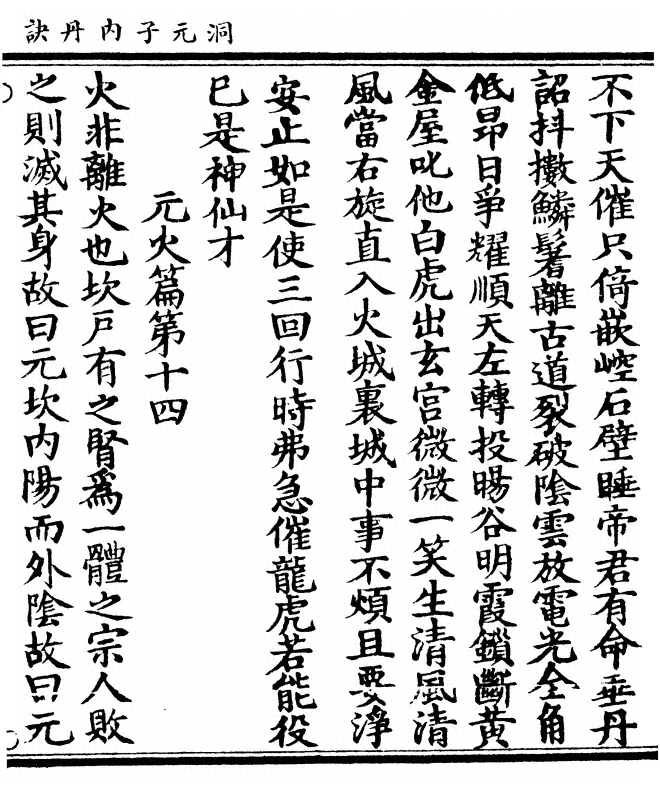 洞元子內丹訣
不下天催只倚嵌崆石壁睡帝君有命垂丹
詔抖擻鱗鬐離古道裂破陰雲放電光全角
低昂日爭耀順天左轉投暘谷明霞鎖斷黃
金屋叱他白虎出玄宮微微一笑生清風清
風當右旋直入火城裏城中事不煩且要淨
安止如是使三回行時弗急催龍虎若能役
巳是神仙才
元火篇第十四
火非離火也坎戶有之腎爲一體之宗人敗
之則滅其身故曰元坎內陽而外陰故曰元